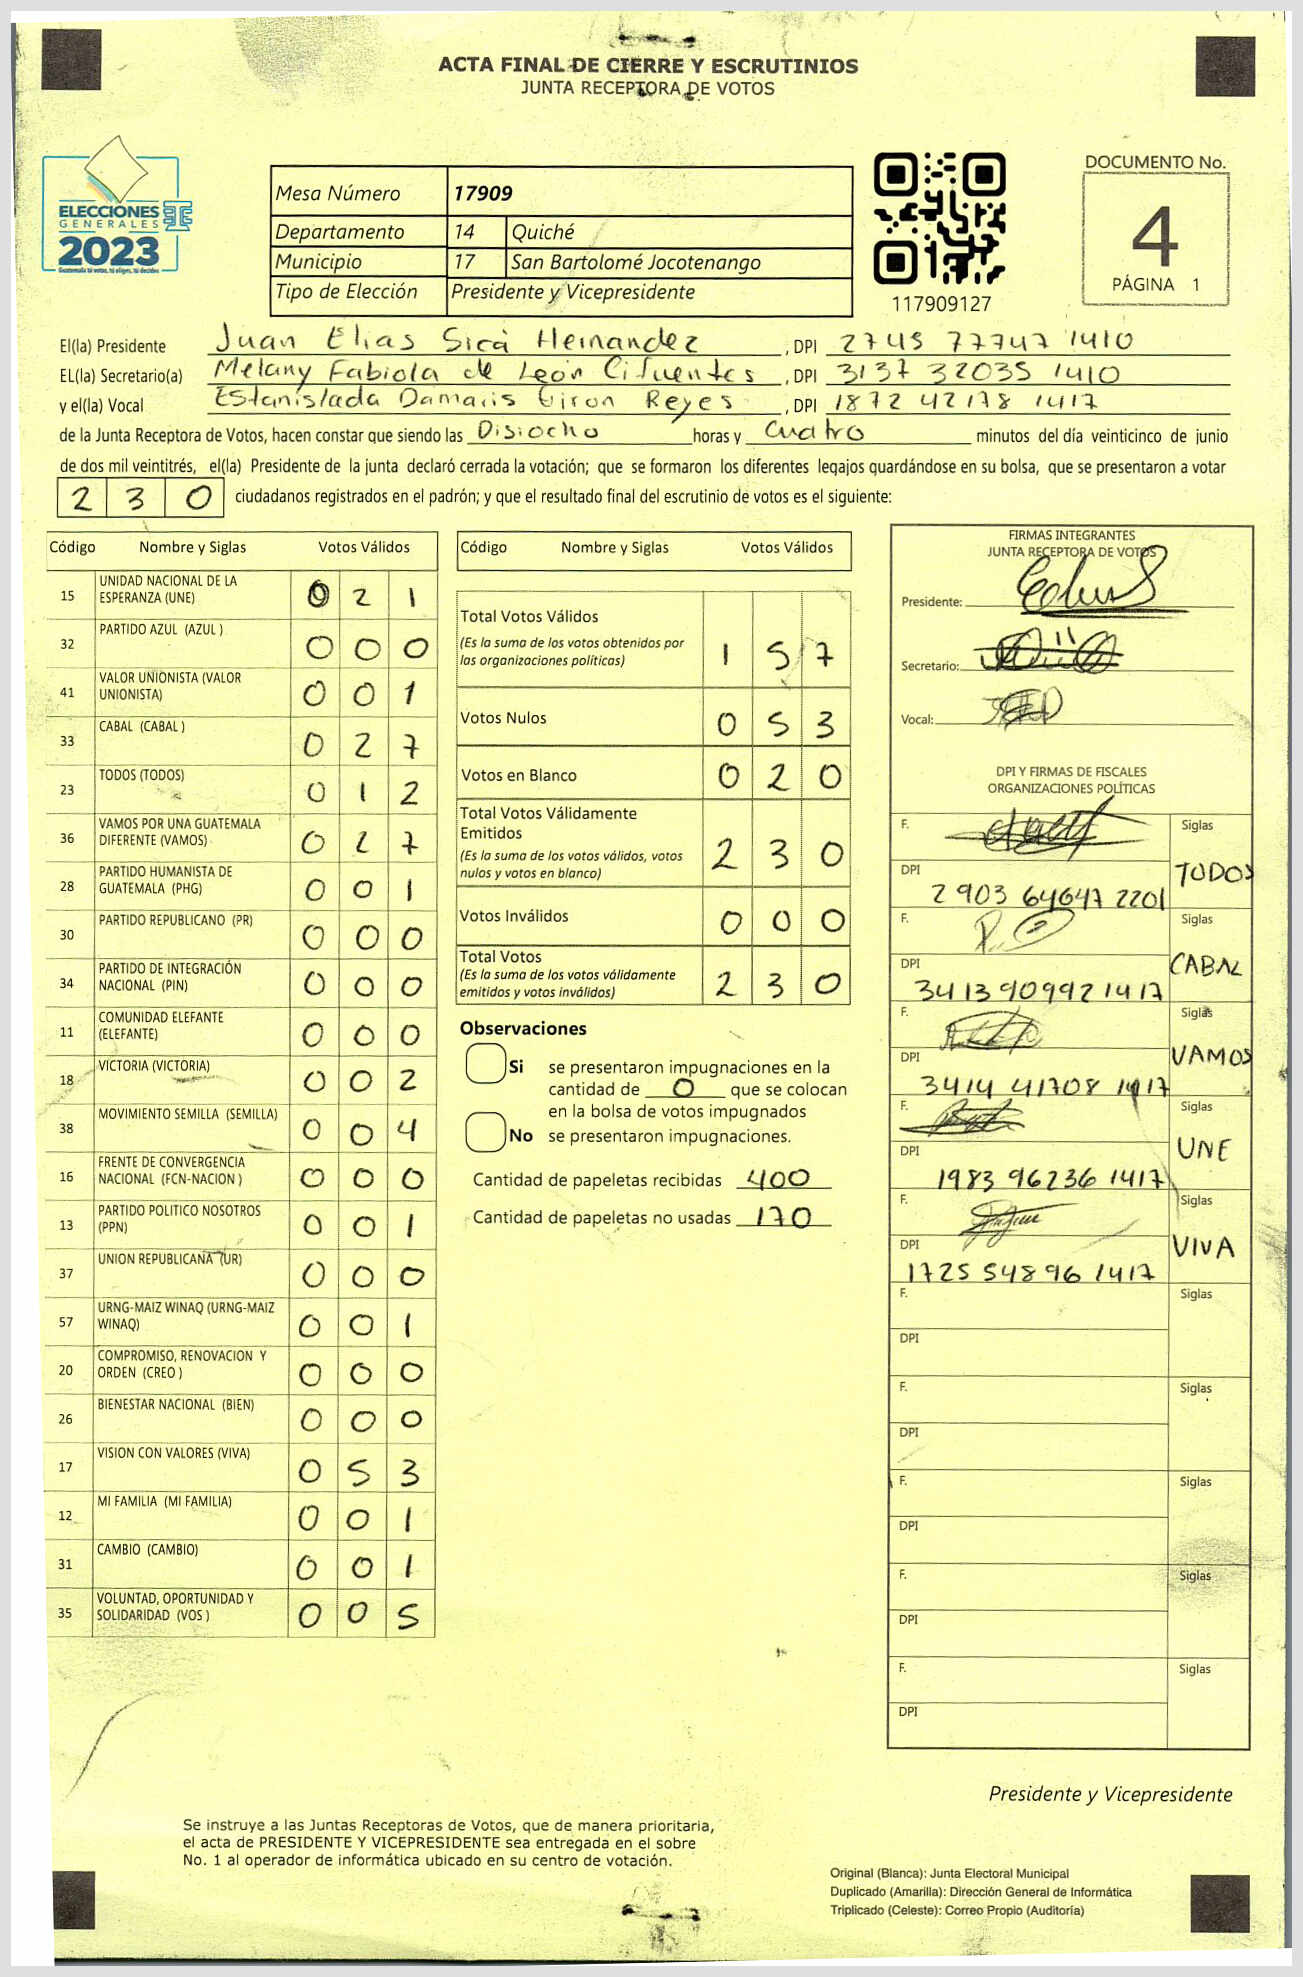 ACTA FINAL DE CIERRE Y ESCRUTINIOS
JUNTA RECEPTORA DE VOTOS
ELECCIONES
GENERALES
2023
Guatemala tú votas, tú eliges, tú decides
Mesa Número 17909
Departamento 14 Quiché
Municipio 17 San Bartolomé Jocotenango
Tipo de Elección Presidente y Vicepresidente
117909127
DOCUMENTO No.
4
PÁGINA 1
El(la) Presidente Juan Elias Sicá Hernandez, DPI 2745 77747 1410
EL(la) Secretario(a) Melany Fabiola de León Cifuentes, DPI 3137 32035 1410
y el(la) Vocal Estanislada Damaris Giron Reyes, DPI 1872 42178 1417
de la Junta Receptora de Votos, hacen constar que siendo las Disiocho horas y Cuatro minutos del día veinticinco de junio
de dos mil veintitrés, el(la) Presidente de la junta declaró cerrada la votación; que se formaron los diferentes legajos guardándose en su bolsa, que se presentaron a votar
2 3 0 ciudadanos registrados en el padrón; y que el resultado final del escrutinio de votos es el siguiente:
Código Nombre y Siglas Votos Válidos
15 UNIDAD NACIONAL DE LA ESPERANZA (UNE) 0 2 1
32 PARTIDO AZUL (AZUL ) 0 0 0
41 VALOR UNIONISTA (VALOR UNIONISTA) 0 0 1
33 CABAL (CABAL ) 0 2 7
23 TODOS (TODOS) 0 1 2
36 VAMOS POR UNA GUATEMALA DIFERENTE (VAMOS) 0 2 7
28 PARTIDO HUMANISTA DE GUATEMALA (PHG) 0 0 1
30 PARTIDO REPUBLICANO (PR) 0 0 0
34 PARTIDO DE INTEGRACIÓN NACIONAL (PIN) 0 0 0
11 COMUNIDAD ELEFANTE (ELEFANTE) 0 0 0
18 VICTORIA (VICTORIA) 0 0 2
38 MOVIMIENTO SEMILLA (SEMILLA) 0 0 4
16 FRENTE DE CONVERGENCIA NACIONAL (FCN-NACION ) 0 0 0
13 PARTIDO POLITICO NOSOTROS (PPN) 0 0 1
37 UNION REPUBLICANA (UR) 0 0 0
57 URNG-MAIZ WINAQ (URNG-MAIZ WINAQ) 0 0 1
20 COMPROMISO, RENOVACION Y ORDEN (CREO ) 0 0 0
26 BIENESTAR NACIONAL (BIEN) 0 0 0
17 VISION CON VALORES (VIVA) 0 5 3
12 MI FAMILIA (MI FAMILIA) 0 0 1
31 CAMBIO (CAMBIO) 0 0 1
35 VOLUNTAD, OPORTUNIDAD Y SOLIDARIDAD (VOS ) 0 0 5
Código Nombre y Siglas Votos Válidos
Total Votos Válidos
(Es la suma de los votos obtenidos por las organizaciones políticas) 1 5 7
Votos Nulos 0 5 3
Votos en Blanco 0 2 0
Total Votos Válidamente Emitidos
(Es la suma de los votos válidos, votos nulos y votos en blanco) 2 3 0
Votos Inválidos 0 0 0
Total Votos
(Es la suma de los votos válidamente emitidos y votos inválidos) 2 3 0
Observaciones
Si se presentaron impugnaciones en la
cantidad de 0 que se colocan
en la bolsa de votos impugnados
No se presentaron impugnaciones.
Cantidad de papeletas recibidas 400
Cantidad de papeletas no usadas 170
FIRMAS INTEGRANTES
JUNTA RECEPTORA DE VOTOS
Presidente:
Secretario:
Vocal:
DPI Y FIRMAS DE FISCALES
ORGANIZACIONES POLÍTICAS
F. Siglas
TODOS
DPI
2903 64647 2201
F. Siglas
CABAL
DPI
3413 90992 1417
F. Siglas
VAMOS
DPI
3414 41708 1417
F. Siglas
UNE
DPI
1983 96236 1417
F. Siglas
VIVA
DPI
1725 54896 1417
F. Siglas
DPI
F. Siglas
DPI
F. Siglas
DPI
F. Siglas
DPI
F. Siglas
DPI
Presidente y Vicepresidente
Se instruye a las Juntas Receptoras de Votos, que de manera prioritaria,
el acta de PRESIDENTE Y VICEPRESIDENTE sea entregada en el sobre
No. 1 al operador de informática ubicado en su centro de votación.
Original (Blanca): Junta Electoral Municipal
Duplicado (Amarilla): Dirección General de Informática
Triplicado (Celeste): Correo Propio (Auditoría)